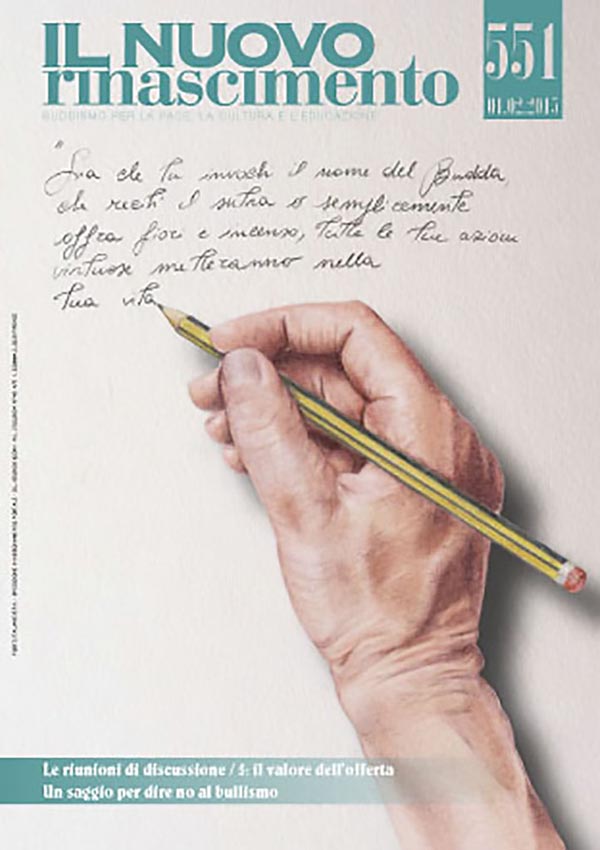 IL NUOVO
rinascimento
551
01.02.2015
BUDDISMO PER LA PACE, LA CULTURA E L'EDUCAZIONE
"Sia che tu invochi il nome del Budda,
che reciti il sutra o semplicemente
offra fiori e incenso, tutte le tue azioni
virtuose metteranno nella
tua vita
Le riunioni di discussione / 5: il valore dell'offerta
Un saggio per dire no al bullismo